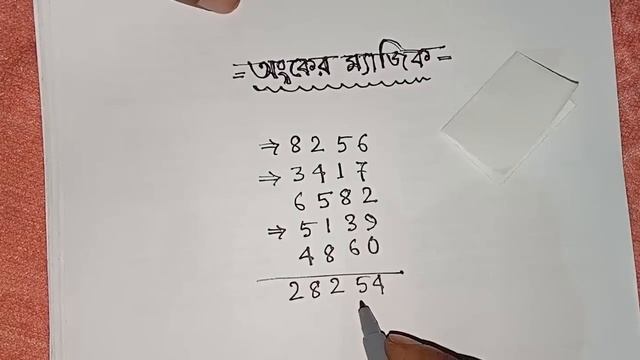 = অংকের ম্যাজিক =
⇒ 8256
⇒ 3417
6582
⇒ 5139
4860
28254